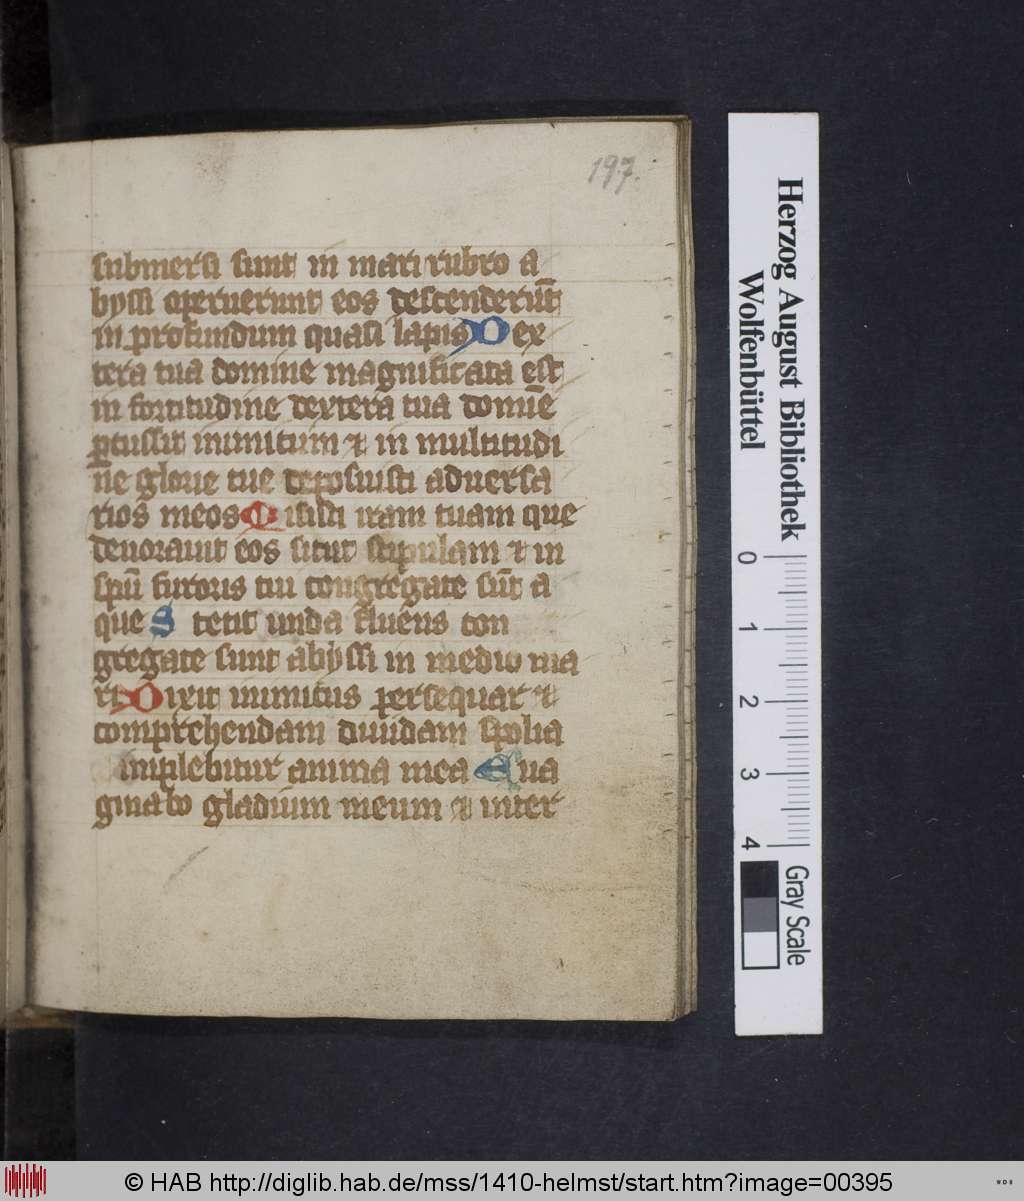 197.
submersi sunt in mari rubro a
byssi operuerunt eos descenderūt
in profundum quasi lapis Dex
tera tua domine magnificata est
in fortitudine dextera tua domīe
ꝑcussit inimicum ⁊ in multitudi
ne glorie tue deposuisti adversa
rios meos Misisti iram tuam que
devoravit eos sicut stipulam ⁊ in
spū furoris tui congregate sūt a
que Stetit unda fluens con
gregate sunt abyssi in medio ma
ri Dixit inimicus persequar ⁊
comprehendam dividam spolia
implebitur anima mea Eva
ginabo gladium meum ⁊ inter
Herzog August Bibliothek
Wolfenbüttel
0 1 2 3 4
Gray Scale
© HAB http://diglib.hab.de/mss/1410-helmst/start.htm?image=00395